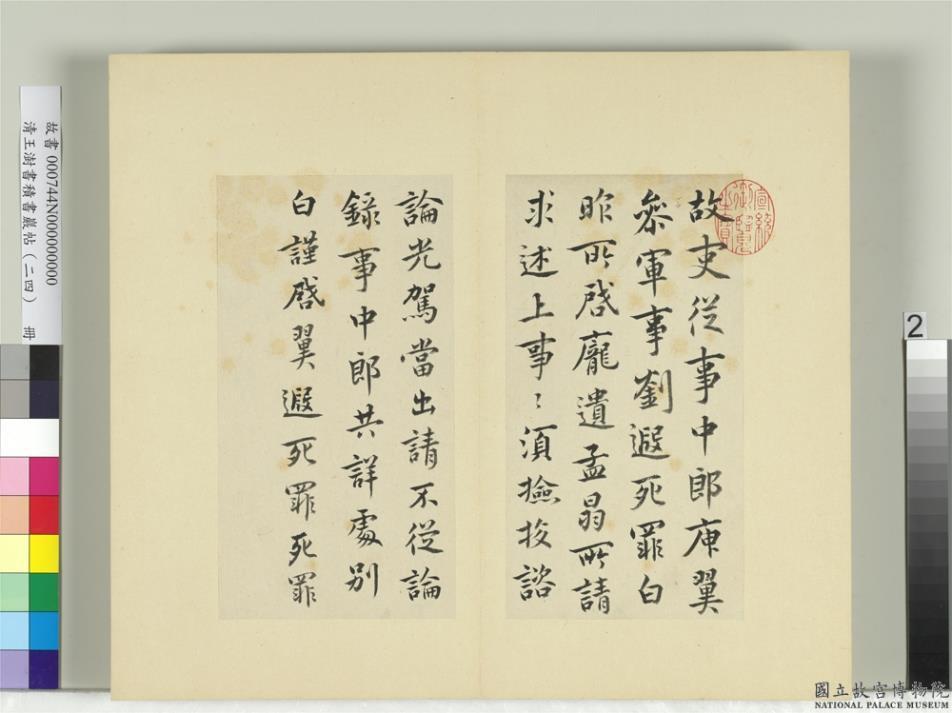 故吏從事中郎庾翼
參軍事劉遐死罪白
昨所啓龐遺孟昴所請
求述上事〻須撿挍諮
論光駕當出請不從論
錄事中郎共詳處別
白謹啓翼遐死罪死罪
宣統御覽之寶
故書 000744N000000000
清王澍書積書巖帖(二四) 冊
2
國立故宮博物院
NATIONAL PALACE MUSEUM